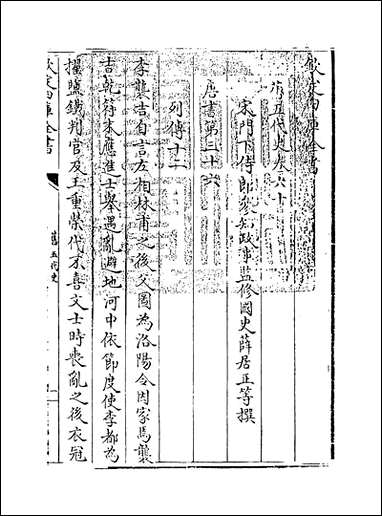 欽定四庫全書
舊五代史卷六十
宋門下侍郎參知政事監修國史薛居正等撰
唐書第三十六
列傳十二
李襲吉自言左相林甫之後父圖為洛陽令因家焉襲
吉乾符末應進士舉遇亂避地河中依節度使李都為
擢鹽鐵判官及王重榮代不喜文士時喪亂之後衣冠
欽定四庫全書
舊五代史